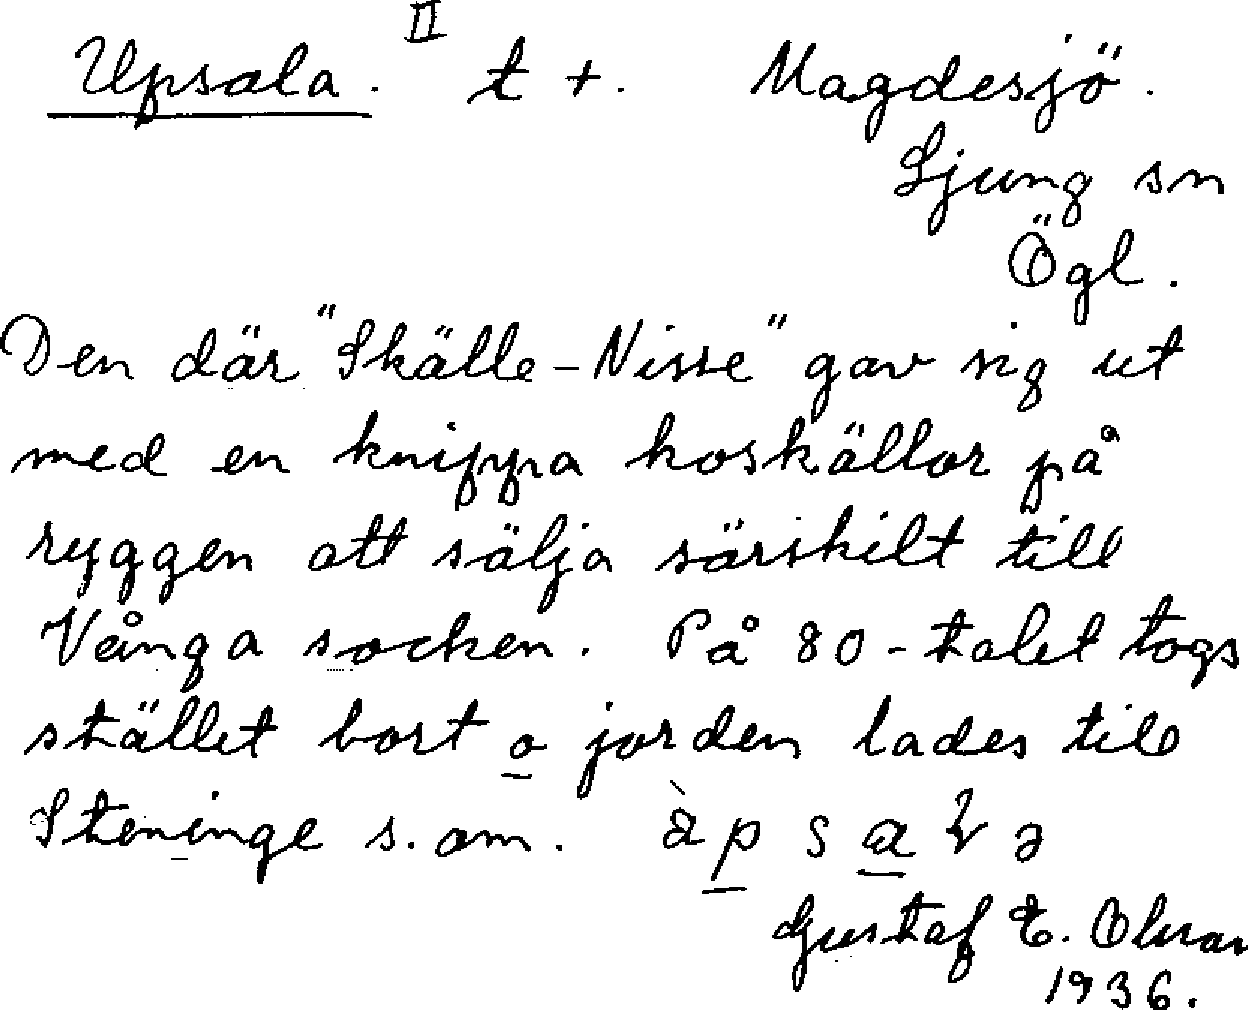 Upsala. II t +. Magdesjö.
Ljung sn
Ögl.
Den där "Skälle-Nisse" gav sig ut
med en knippa koskällor på
ryggen att sälja särskilt till
Vånga socken. På 80-talet togs
stället bort o jorden lades till
Steninge s. om.
Gustaf E.
1936.